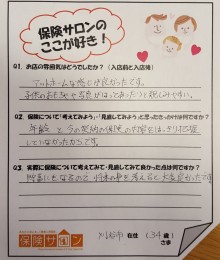 保険サロンの
ここが好き!
Q1. お店の雰囲気はどうでしたか?(入店前と入店後)
アットホームな感じが良かったです。
子供のおもちゃや写真がはってあったりと親しみやすい。
Q2. 保険について「考えてみよう」「見直してみよう」と思ったきっかけは何ですか?
年齢と今の契約の保険の内容をはっきりと把握
していなかったからです。
Q3. 実際に保険について考えてみて・見直してみて良かった点は何ですか?
将来の事を考えると大変良かったです
保険サロン
在住
(34歳)
さま